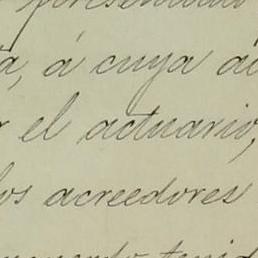 presentado
a, á cuya a
r el actuario,
los acreedores